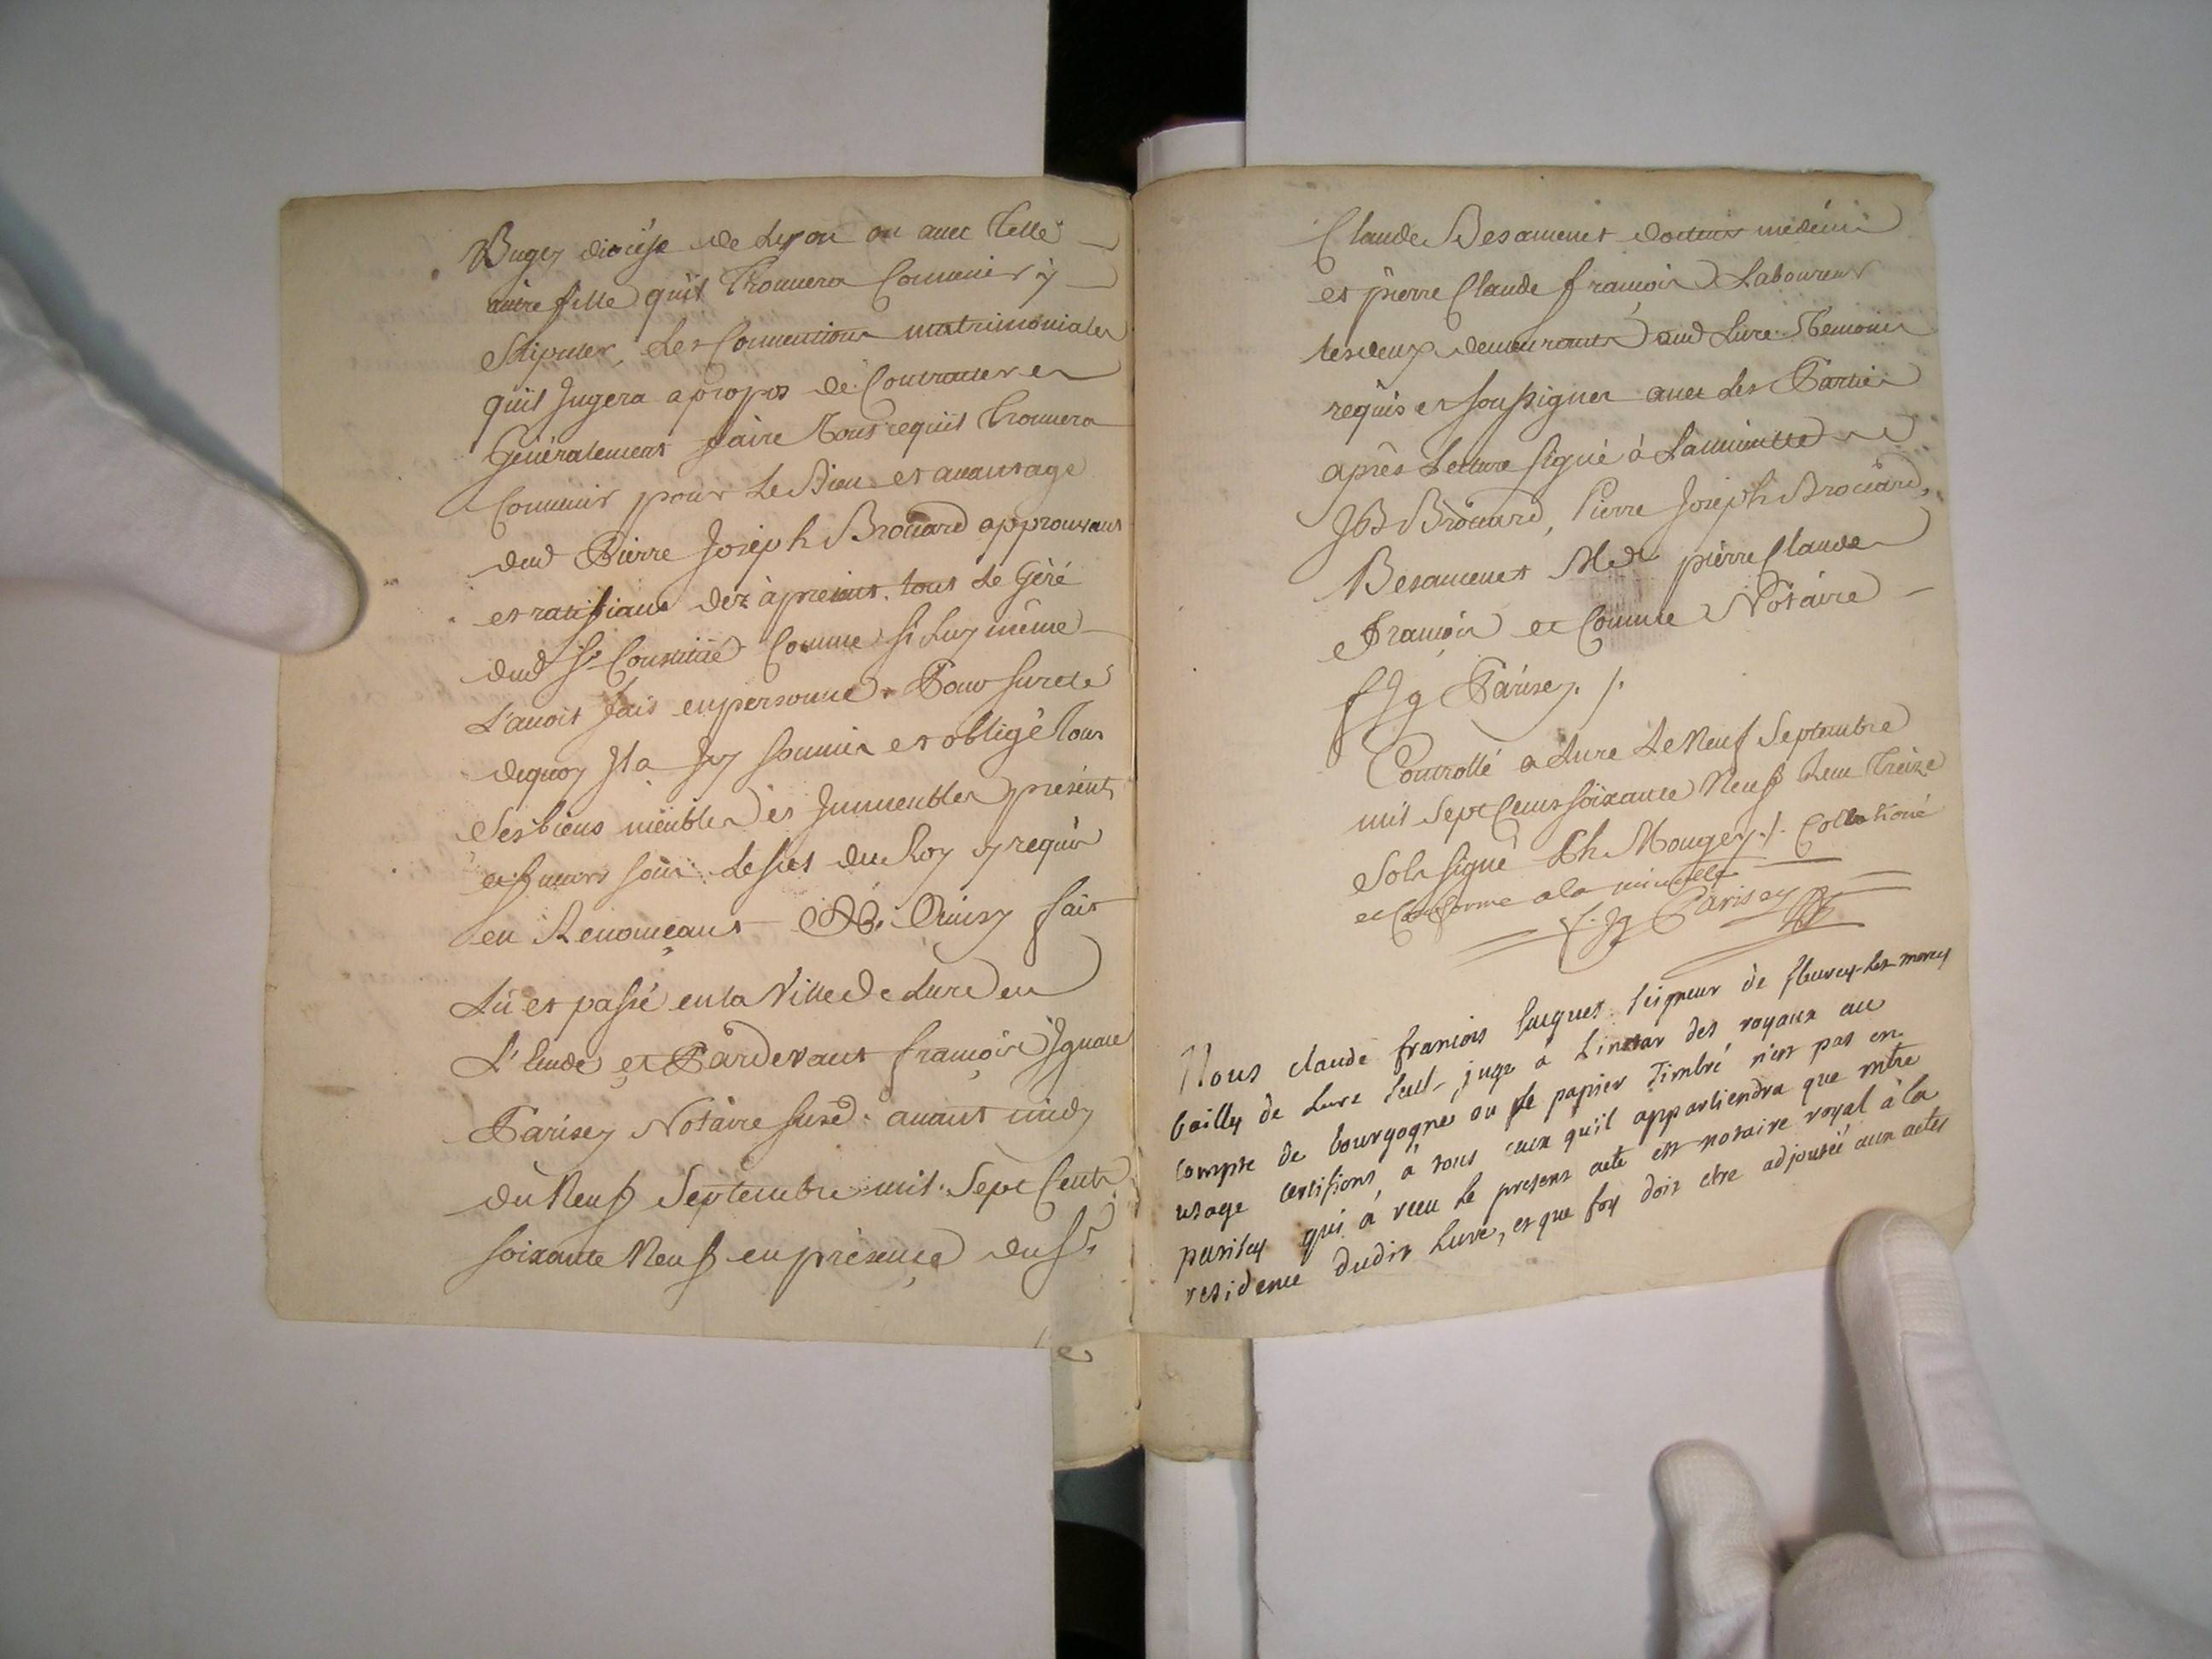 Bugey diocèse de Lyon ou avec Telle
autre fille quil Trouvera Convenir y
Stipuler Les Conventions matrimoniales
quil Jugera apropos de Contracter et
Généralement faire Tout cequil Trouvera
Convenir pour Le Bien et avantage
dud Pierre Joseph Broüard approuvant
et ratifiant dez àpresent tout Le Géré
dud Sr Constitué Comme si Luy même
L'avoit fait en personne. Pour Sureté
dequoy Il a Icy Soumis et obligé Tous
Ses biens meubles et Immeubles présents
et futurs sous Le scel du Roy y requis
en Renonceant &c. Ainsy fait
Lu et passé en la Ville de Lure en
L'Etude et Pardevant françois Ignace
Parisey Notaire susd. avant midy
du Neuf Septembre mil Sept Cents
soixante Neuf en présence du Sr
Claude Besancenet docteur médecin
et pierre Claude françois Laboureur
les deux demeurants aud Lure Témoins
requis et soussignés avec Les Parties
après Lecture signé à La minutte
JB Broüard, Pierre Joseph Broüard,
Besancenet Md pierre Claude
François et Comme Notaire
f Ig Parisey ./.
Controllé a Lure Le Neuf Septembre
mil Sept Cents soixante Neuf Reçu Treize
Sols signé Ph Mougey ./. Collationé
et Conforme a la minutte
f. Ig Parisey
Nous claude francois huguet Seigneur de fleurey-les-
bailly de Lure seul juge a Linstar des royaux au
compte de bourgogne ou le papier Timbré n'est pas en
usage certifions a tous ceux qu'il appartiendra que mtre
parisey qui a receu le present acte est notaire royal à la
residence dudit Lure, et que foy doit etre adjoutée aux actes